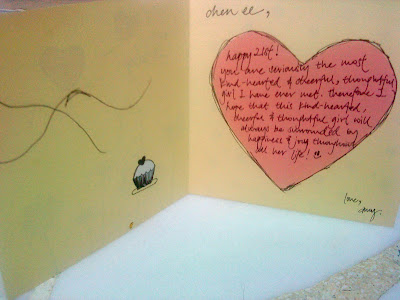 chen ee,
happy 21st!
you are seriously the most
kind-hearted & cheerful, thoughtful
girl I have ever met. therefore I
hope that this kind-hearted,
cheerful & thoughtful girl will
always be surrounded by
happiness & joy throughout
all her life!
love,